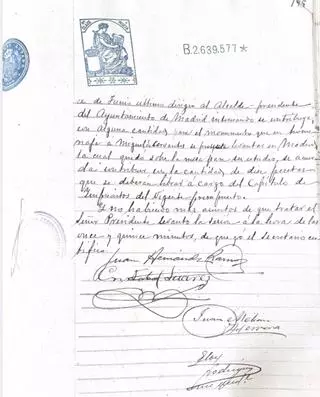 B.2.639.577*
ce de Junio último dirigió el Alcalde-presidente
del Ayuntamiento de Madrid interesando se contribuya
con alguna cantidad para el monumento que en home
naje a Miguel Cervantes se proyecta levantar en Madrid
la cual quedó sobre la mesa para su estudio, se acuer
da contribuir con la cantidad de diez pesetas
que se deberán librar a cargo del Capítulo de
imprevistos del vigente presupuesto.
Y no habiendo más asuntos de que tratar el
Señor Presidente levantó la sesión a la hora de las
once y quince minutos, de que yo el Secretario cer
tifico.
Juan Hernández
Suárez
Juan Esteban
Herrera
Eloy
Rodríguez